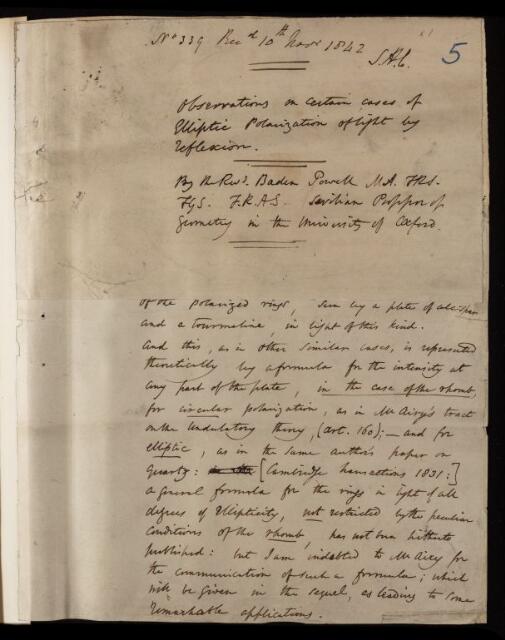 No 339 Recd 10th Novr 1842
S.H.C.
5
Observations on certain cases of
Elliptic Polarization of light by
reflexion.
By the Revd. Baden Powell M.A. F.R.S.
F.G.S. F.R.A.S. Savilian Professor of
Geometry in the University of Oxford.
of the polarized rings, seen by a plate of calc: spar
and a tourmaline, in light of this kind.
And this, as in other similar cases, is represented
theoretically by a formula for the intensity at
any part of the plate, in the case of the rhomb,
for circular polarization, as in Mr Airy's tract
on the Undulatory theory, (art. 160); — and for
elliptic, as in the same author's paper on
quartz: [Cambridge transactions 1831:]
a general formula for the rings in light of all
degrees of Ellipticity, not restricted by the peculiar
conditions of the rhomb, has not been hitherto
published: but I am indebted to Mr Airy for
the communication of such a formula; which
will be given in the sequel, as leading to some
remarkable applications.